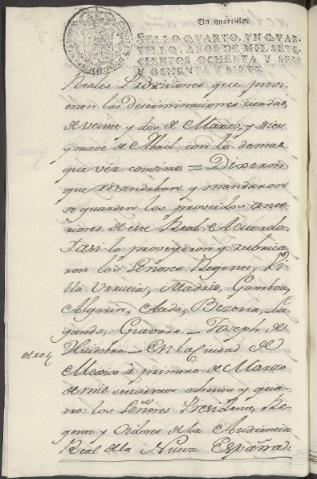 Un quartillo.
SELLO QUARTO, VN QUAR-
TILLO, AÑOS DE MIL SETE-
CIENTOS OCHENTA Y SEIS
Y OCHENTA Y SIETE.
Reales Provisiones que
las determinaciones
de veinte y dos de Marzo, y diez
y nueve de Abril, con lo demas
que ver combino = Dixeron
que mandaban y mandaron
se guarden los proveidos ante
riores de este Real Acuerdo.
Y asi lo proveyeron y rubrica
ron los Señores Regente, Vi
lla Urrutia, Madrid, Gamboa,
Algarin, Bezerra,
Guevara = Joseph de
= En la Ciudad de
Mexico à primero de Marzo
de mil setecientos ochenta y qua
tro: los Señores Presidente, Re
gente y Oidores de la Audiencia
Real de la Nueva España: